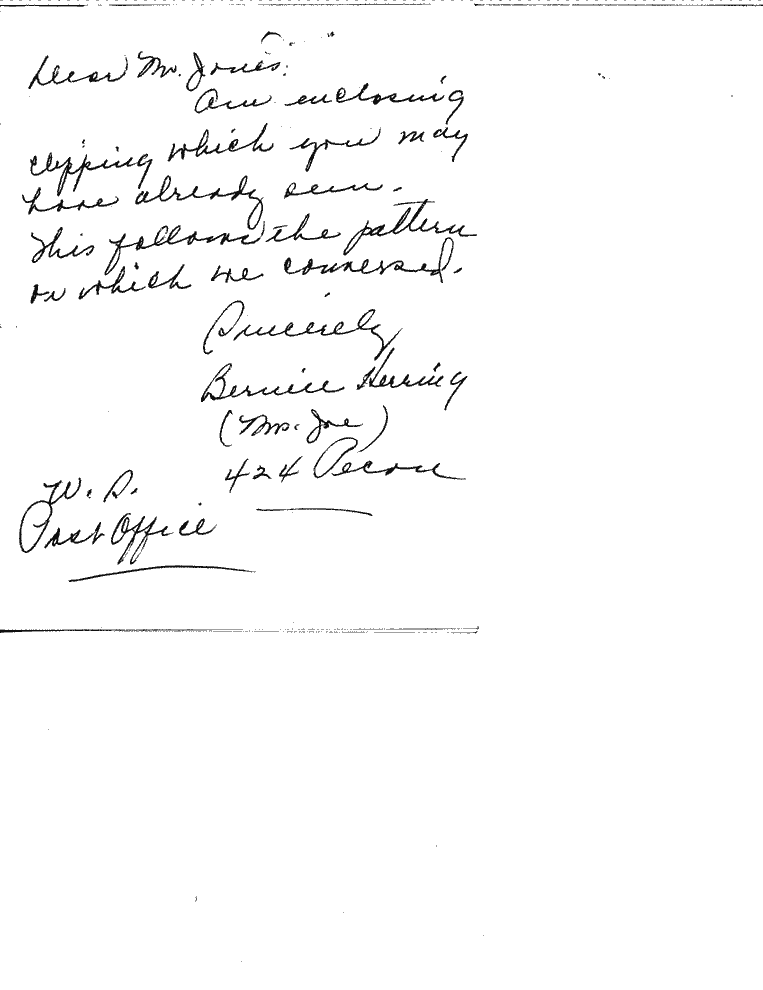 Dear Mr. Jones:
Am enclosing
clipping which you may
have already seen.
This follows the pattern
on which we conversed.
Sincerely
Bernice Herring
(Mrs. Joe)
424 Pecan
W. S.
Post Office